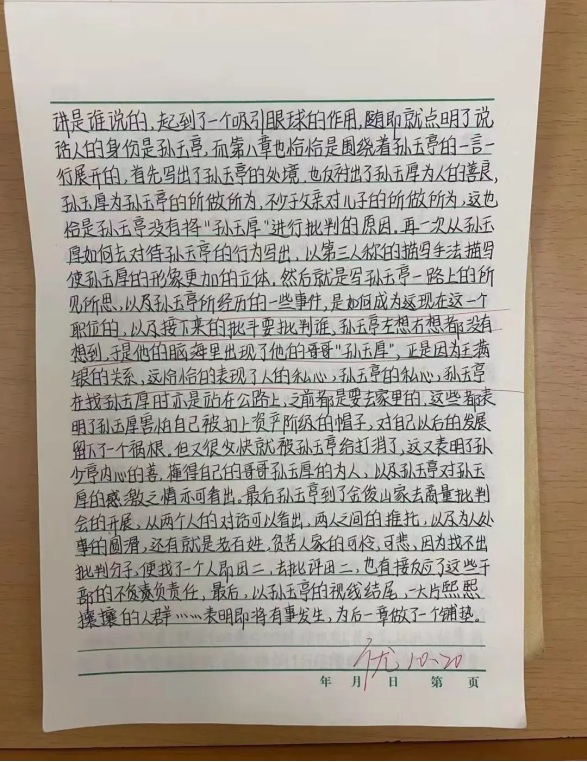 讲是谁说的，起到了一个吸引眼球的作用，随即就点明了说
话人的身份是孙玉亭，而第八章也恰恰是围绕着孙玉亭的一言一
行展开的，首先写出了孙玉亭的处境，也反衬出了孙玉厚为人的善良，
孙玉厚为孙玉亭的所做所为，不少于父亲对儿子的所做所为，这也
恰是孙玉亭没有将“孙玉厚”进行批判的原因，再一次从孙玉
厚如何去对待孙玉亭的行为写出，以第三人称的描写手法描写
使孙玉厚的形象更加的立体，然后就是写孙玉亭一路上的所
见所思，以及孙玉亭所经历的一些事件，是如何成为这现在这一个
职位的，以及接下来的批斗要批判谁，孙玉亭左想右想都没有
想到，于是他的脑海里出现了他的哥哥“孙玉厚”，正是因为王满
银的关系，这恰恰的表现了人的私心，孙玉亭的私心，孙玉亭
在找孙玉厚时亦是站在公路上，之前都是要去家里的，这些都表
明了孙玉厚害怕自己被扣上资产阶级的帽子，对自己以后的发展
留下了一个祸根，但又很少快就被孙玉亭给打消了，这又表明了孙
少亭内心的善，懂得自己的哥哥孙玉厚的为人，以及孙玉亭对孙玉
厚的感激之情亦可看出。最后孙玉亭到了金俊山家去商量批判
会的开展，从两个人的对话可以看出，两人之间的推托，以及为人处
事的圆滑，还有就是老百姓，贫苦人家的可怜，可悲，因为找不出
批判分子，便找了一个人即田二，去批评田二，也有接反应了这些干
部的不负责负责任，最后，以孙玉亭的视线结尾，一大片熙熙
攘攘的人群……表明即将有事发生，为后一章做了一个铺垫。
优 10-20
年 月 日 第 页